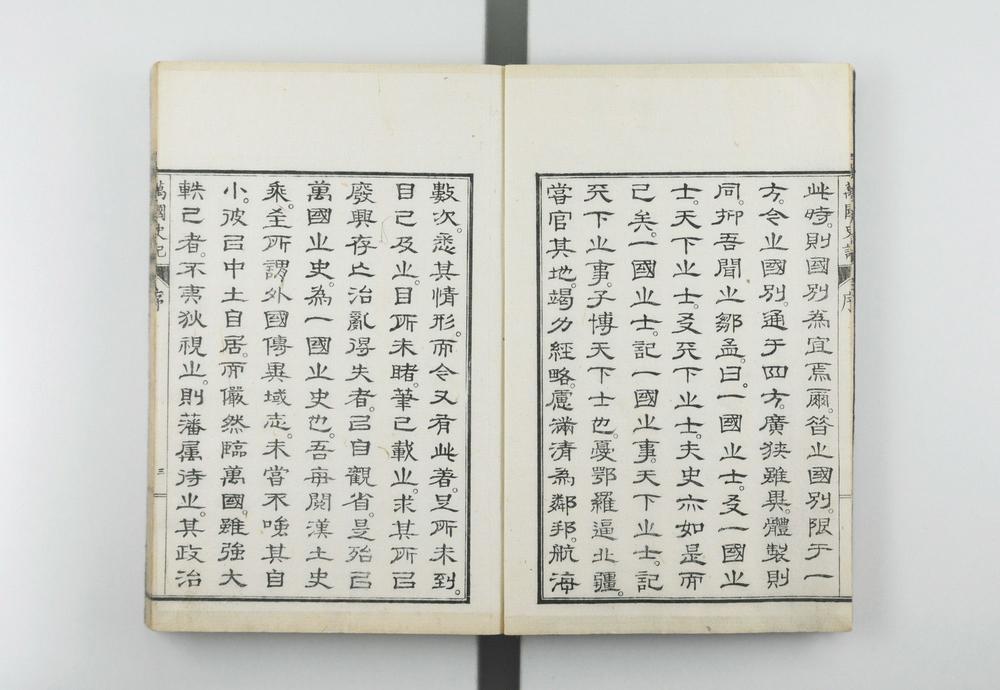 萬國史記 序
此時。則國別為宜焉爾。昔之國別。限于一
方。今之國別。通于四方。廣狹雖異。體製則
同。抑吾聞之鄒孟。曰。一國之士。友一國之
士。天下之士。友天下之士。夫史亦如是而
已矣。一國之士。記一國之事。天下之士。記
天下之事。子博天下士也。憂鄂羅逼北疆。
嘗官其地。竭力經略。慮滿清為鄰邦。航海
數次。悉其情形。而今又有此著。足所未到。
目已及之。目所未睹。筆已載之。求其所以
廢興存亡治亂得失者。以自觀省。是殆以
萬國之史。為一國之史也。吾每閱漢土史
乘。至所謂外國傳異域志。未嘗不嗤其自
小。彼以中土自居。而儼然臨萬國。雖強大
軼己者。不夷狄視之。則藩屬待之。其政治
萬國史記 序 三